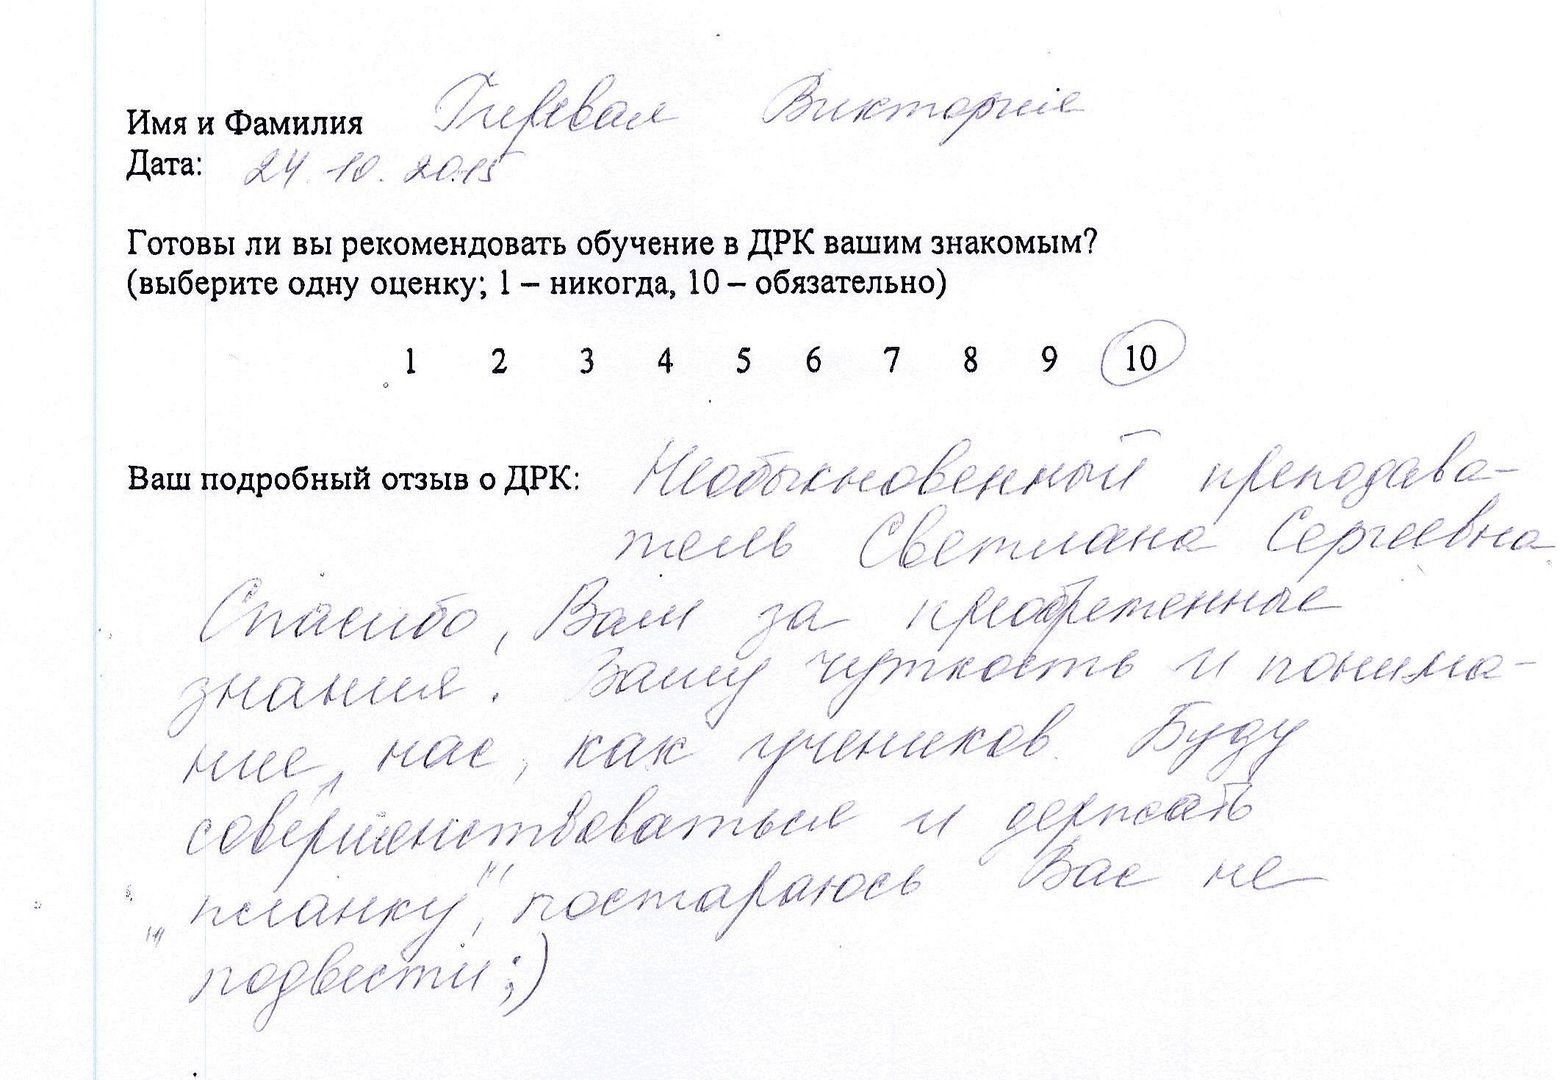 Имя и Фамилия Виктория
Дата: 24.10.2015
Готовы ли вы рекомендовать обучение в ДРК вашим знакомым?
(выберите одну оценку; 1 – никогда, 10 – обязательно)
1 2 3 4 5 6 7 8 9 10
Ваш подробный отзыв о ДРК: Необыкновенный преподава-
тель Светлана Сергеевна
Спасибо, Вам за преобретенные
знания. Вашу чуткость и понима-
ние, нас, как учеников. Буду
совершенствоваться и держать
„планку", постараюсь Вас не
подвести ;)